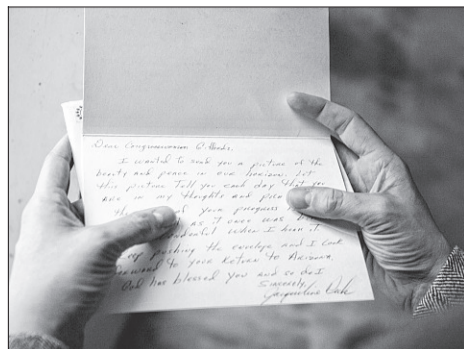 Dear Congresswoman Giffords,
I wanted to send you a picture of the
beauty and peace in our horizons. Let
this picture tell you each day that you
are in my thoughts and
the of your progress
as it once was
when I hear it
pushing the envelope and I look
forward to your return to Arizona.
God has blessed you and so do I.
Sincerely,
Jacqueline